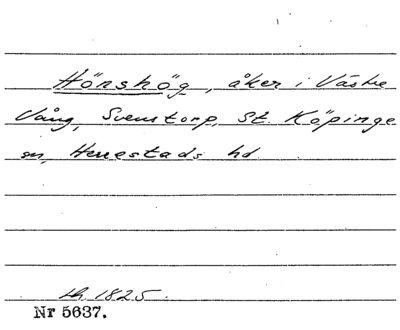 Hönshög, åker i Västre
Vång, Svenstorp, St. Köpinge
sn, Herrestads hd.
Lh. 1825.
Nr 5637.